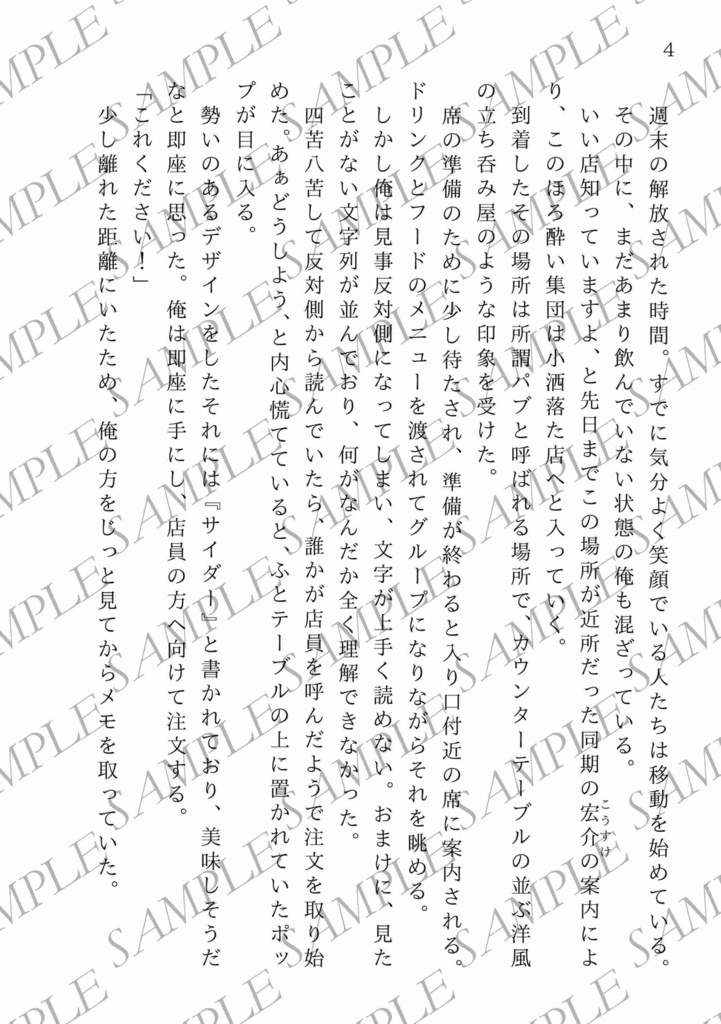 4
週末の解放された時間。すでに気分よく笑顔でいる人たちは移動を始めている。
その中に、まだあまり飲んでいない状態の俺も混ざっている。
いい店知っていますよ、と先日までこの場所が近所だった同期の宏介の案内によ
こうすけ
り、このほろ酔い集団は小洒落た店へと入っていく。
到着したその場所は所謂パブと呼ばれる場所で、カウンターテーブルの並ぶ洋風
の立ち呑み屋のような印象を受けた。
席の準備のために少し待たされ、準備が終わると入り口付近の席に案内される。
ドリンクとフードのメニューを渡されてグループになりながらそれを眺める。
しかし俺は見事反対側になってしまい、文字が上手く読めない。おまけに、見た
ことがない文字列が並んでおり、何がなんだか全く理解できなかった。
四苦八苦して反対側から読んでいたら、誰かが店員を呼んだようで注文を取り始
めた。あぁどうしよう、と内心慌てていると、ふとテーブルの上に置かれていたポッ
プが目に入る。
勢いのあるデザインをしたそれには『サイダー』と書かれており、美味しそうだ
なと即座に思った。俺は即座に手にし、店員の方へ向けて注文する。
「これください！」
少し離れた距離にいたため、俺の方をじっと見てからメモを取っていた。
SAMPLE SAMPLE SAMPLE SAMPLE